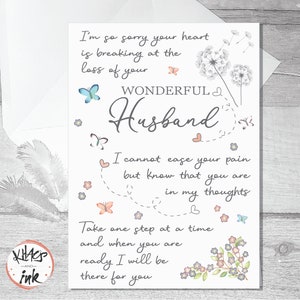 I'm so sorry your heart
is breaking at the
loss of your
WONDERFUL
Husband
I cannot ease your pain
but know that you are
in my thoughts
Take one step at a time
and when you are
ready I will be
there for you
KIMER
ink